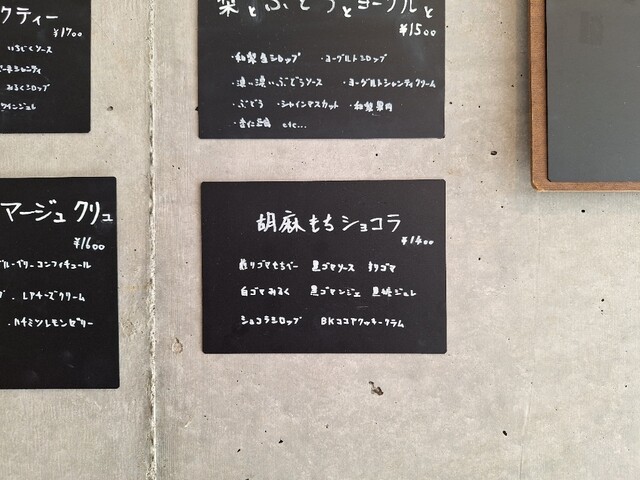 クティー
¥1700
いちじくソース
みるくシロップ
ワインジュレ
梨とぶどうとヨーグルと
¥1500
・和梨生シロップ ・ヨーグルトシロップ
・濃い濃いぶどうソース ・ヨーグルトシャンティクリーム
・ぶどう ・シャインマスカット ・和梨果肉
・杏仁豆腐 etc...
マージュ クリュ
¥1600
ブルーベリーコンフィチュール
・レアチーズクリーム
・ハチミツレモンゼリー
胡麻もちショコラ
¥1400
煎りゴマもちべー 黒ゴマソース すりゴマ
白ゴマみるく 黒ゴマンジェ 黒糖ジュレ
ショコラシロップ BKココアクッキークラム